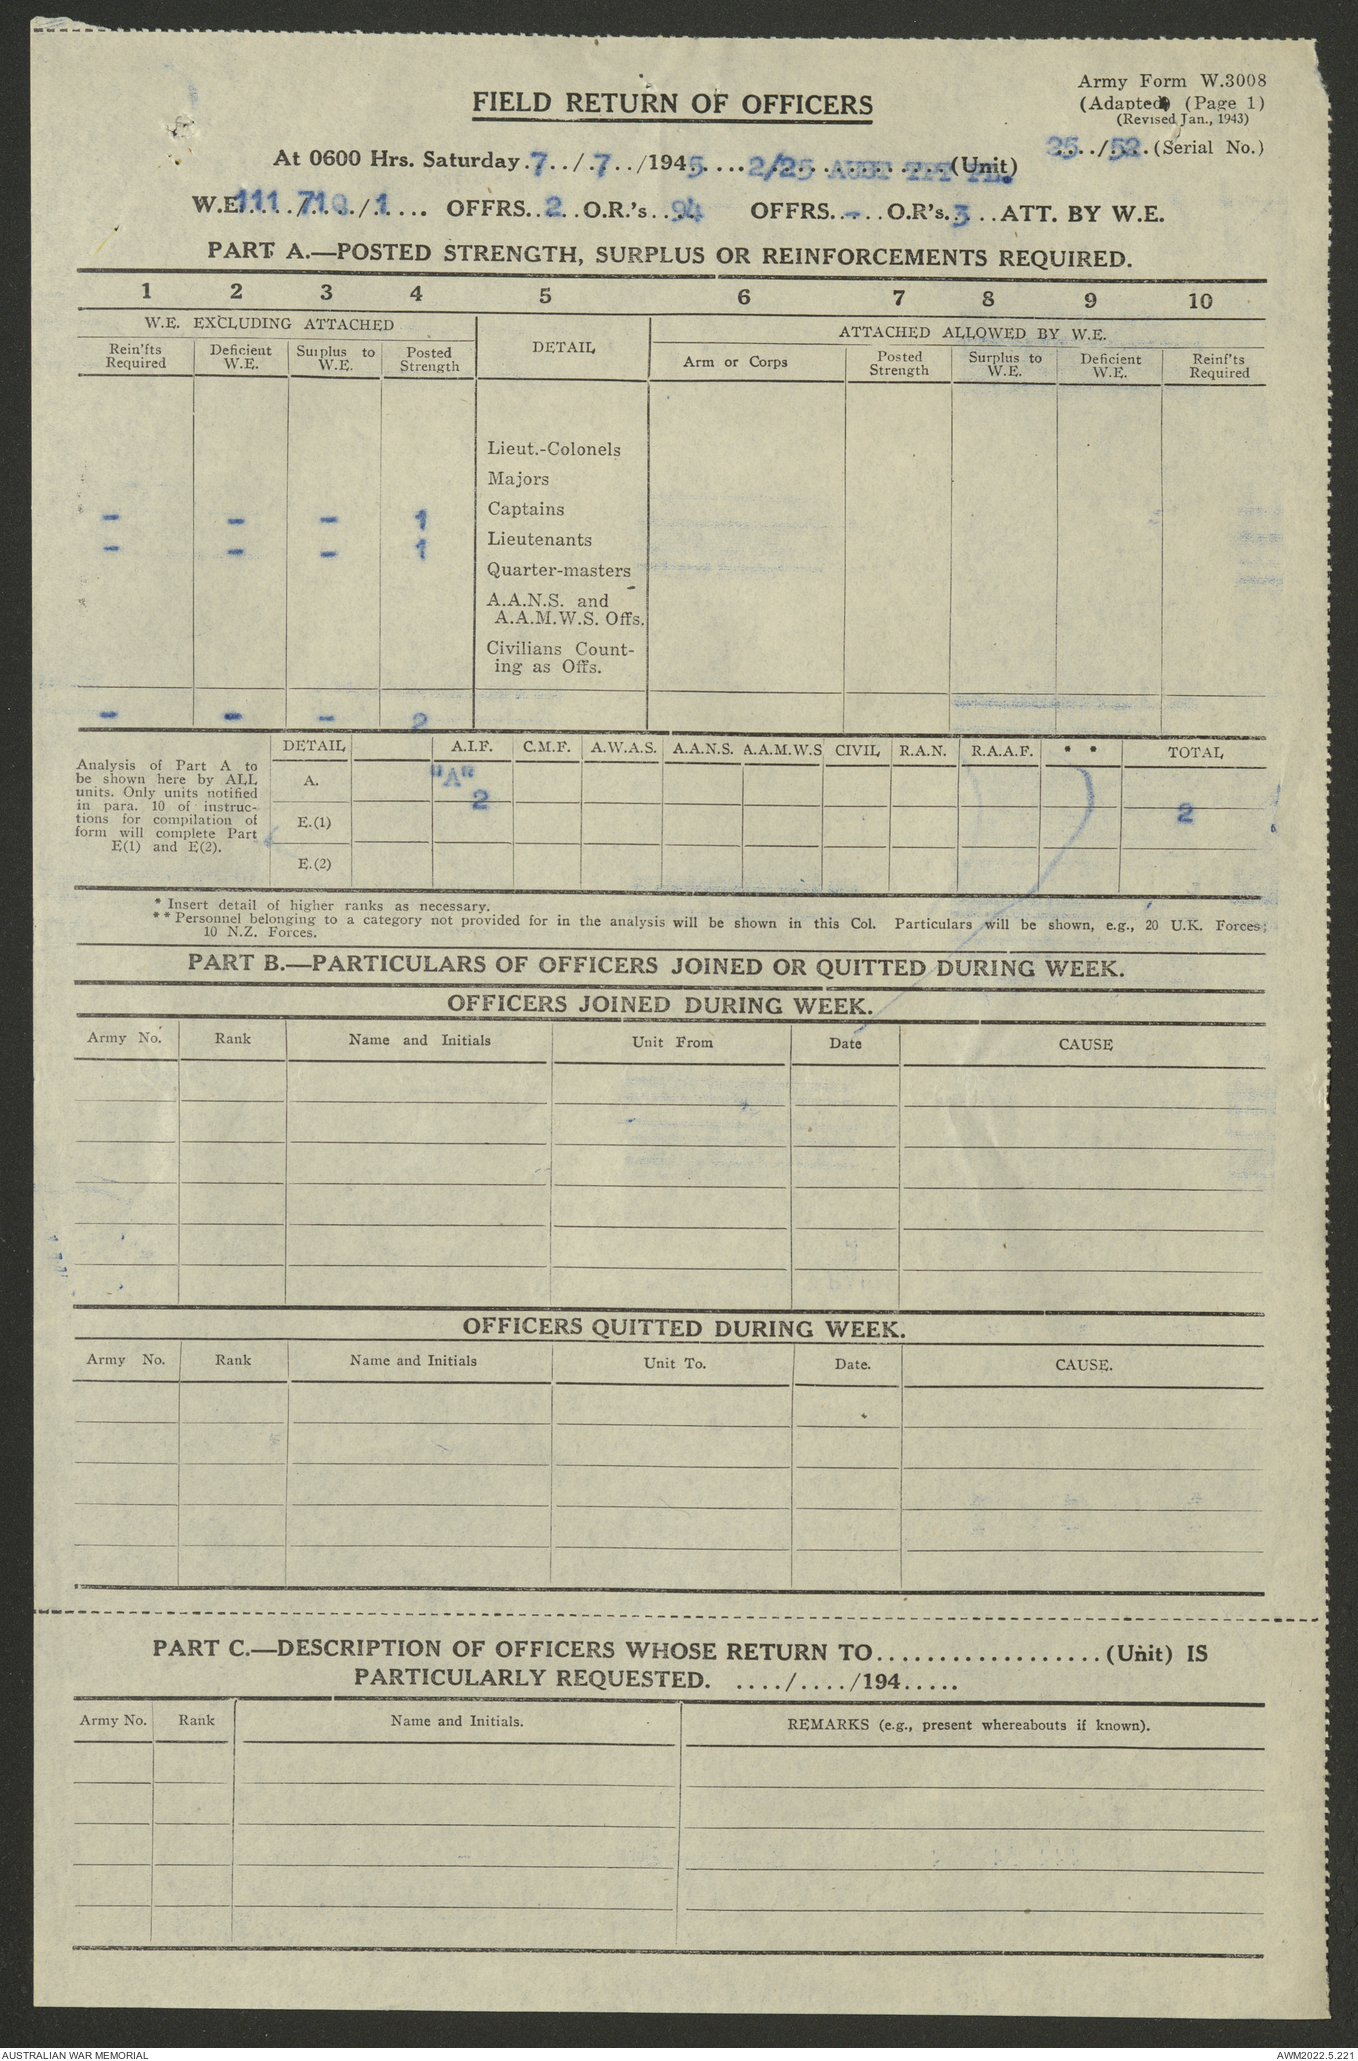 Army Form W.3008
FIELD RETURN OF OFFICERS
(Adapted) (Page 1)
(Revised Jan., 1943)
25/52 (Serial No.)
At 0600 Hrs. Saturday 7../.7../1945.... 2/25 AUST (Unit)
W.E. 111./710./1.... OFFRS..2..O.R.'s..94 OFFRS..-..O.R's.3..ATT. BY W.E.
PART A.—POSTED STRENGTH, SURPLUS OR REINFORCEMENTS REQUIRED.
1 2 3 4 5 6 7 8 9 10
W.E. EXCLUDING ATTACHED DETAIL ATTACHED ALLOWED BY W.E.
Rein'fts Required Deficient W.E. Surplus to W.E. Posted Strength Arm or Corps Posted Strength Surplus to W.E. Deficient W.E. Reinf'ts Required
Lieut.-Colonels
Majors
- - - 1 Captains
- - - 1 Lieutenants
Quarter-masters
A.A.N.S. and
A.A.M.W.S. Offs.
Civilians Count-
ing as Offs.
- - - 2
DETAIL A.I.F. C.M.F. A.W.A.S. A.A.N.S. A.A.M.W.S CIVIL R.A.N. R.A.A.F. * * TOTAL
Analysis of Part A to
be shown here by ALL
units. Only units notified
in para. 10 of instruc-
tions for compilation of
form will complete Part
E(1) and E(2).
A. "A"
2 2
E.(1)
E.(2)
* Insert detail of higher ranks as necessary.
** Personnel belonging to a category not provided for in the analysis will be shown in this Col. Particulars will be shown, e.g., 20 U.K. Forces;
10 N.Z. Forces.
PART B.—PARTICULARS OF OFFICERS JOINED OR QUITTED DURING WEEK.
OFFICERS JOINED DURING WEEK.
Army No. Rank Name and Initials Unit From Date CAUSE
OFFICERS QUITTED DURING WEEK.
Army No. Rank Name and Initials Unit To. Date. CAUSE.
PART C.—DESCRIPTION OF OFFICERS WHOSE RETURN TO..................(Unit) IS
PARTICULARLY REQUESTED. ..../..../194.....
Army No. Rank Name and Initials. REMARKS (e.g., present whereabouts if known).
AUSTRALIAN WAR MEMORIAL AWM2022.5.221